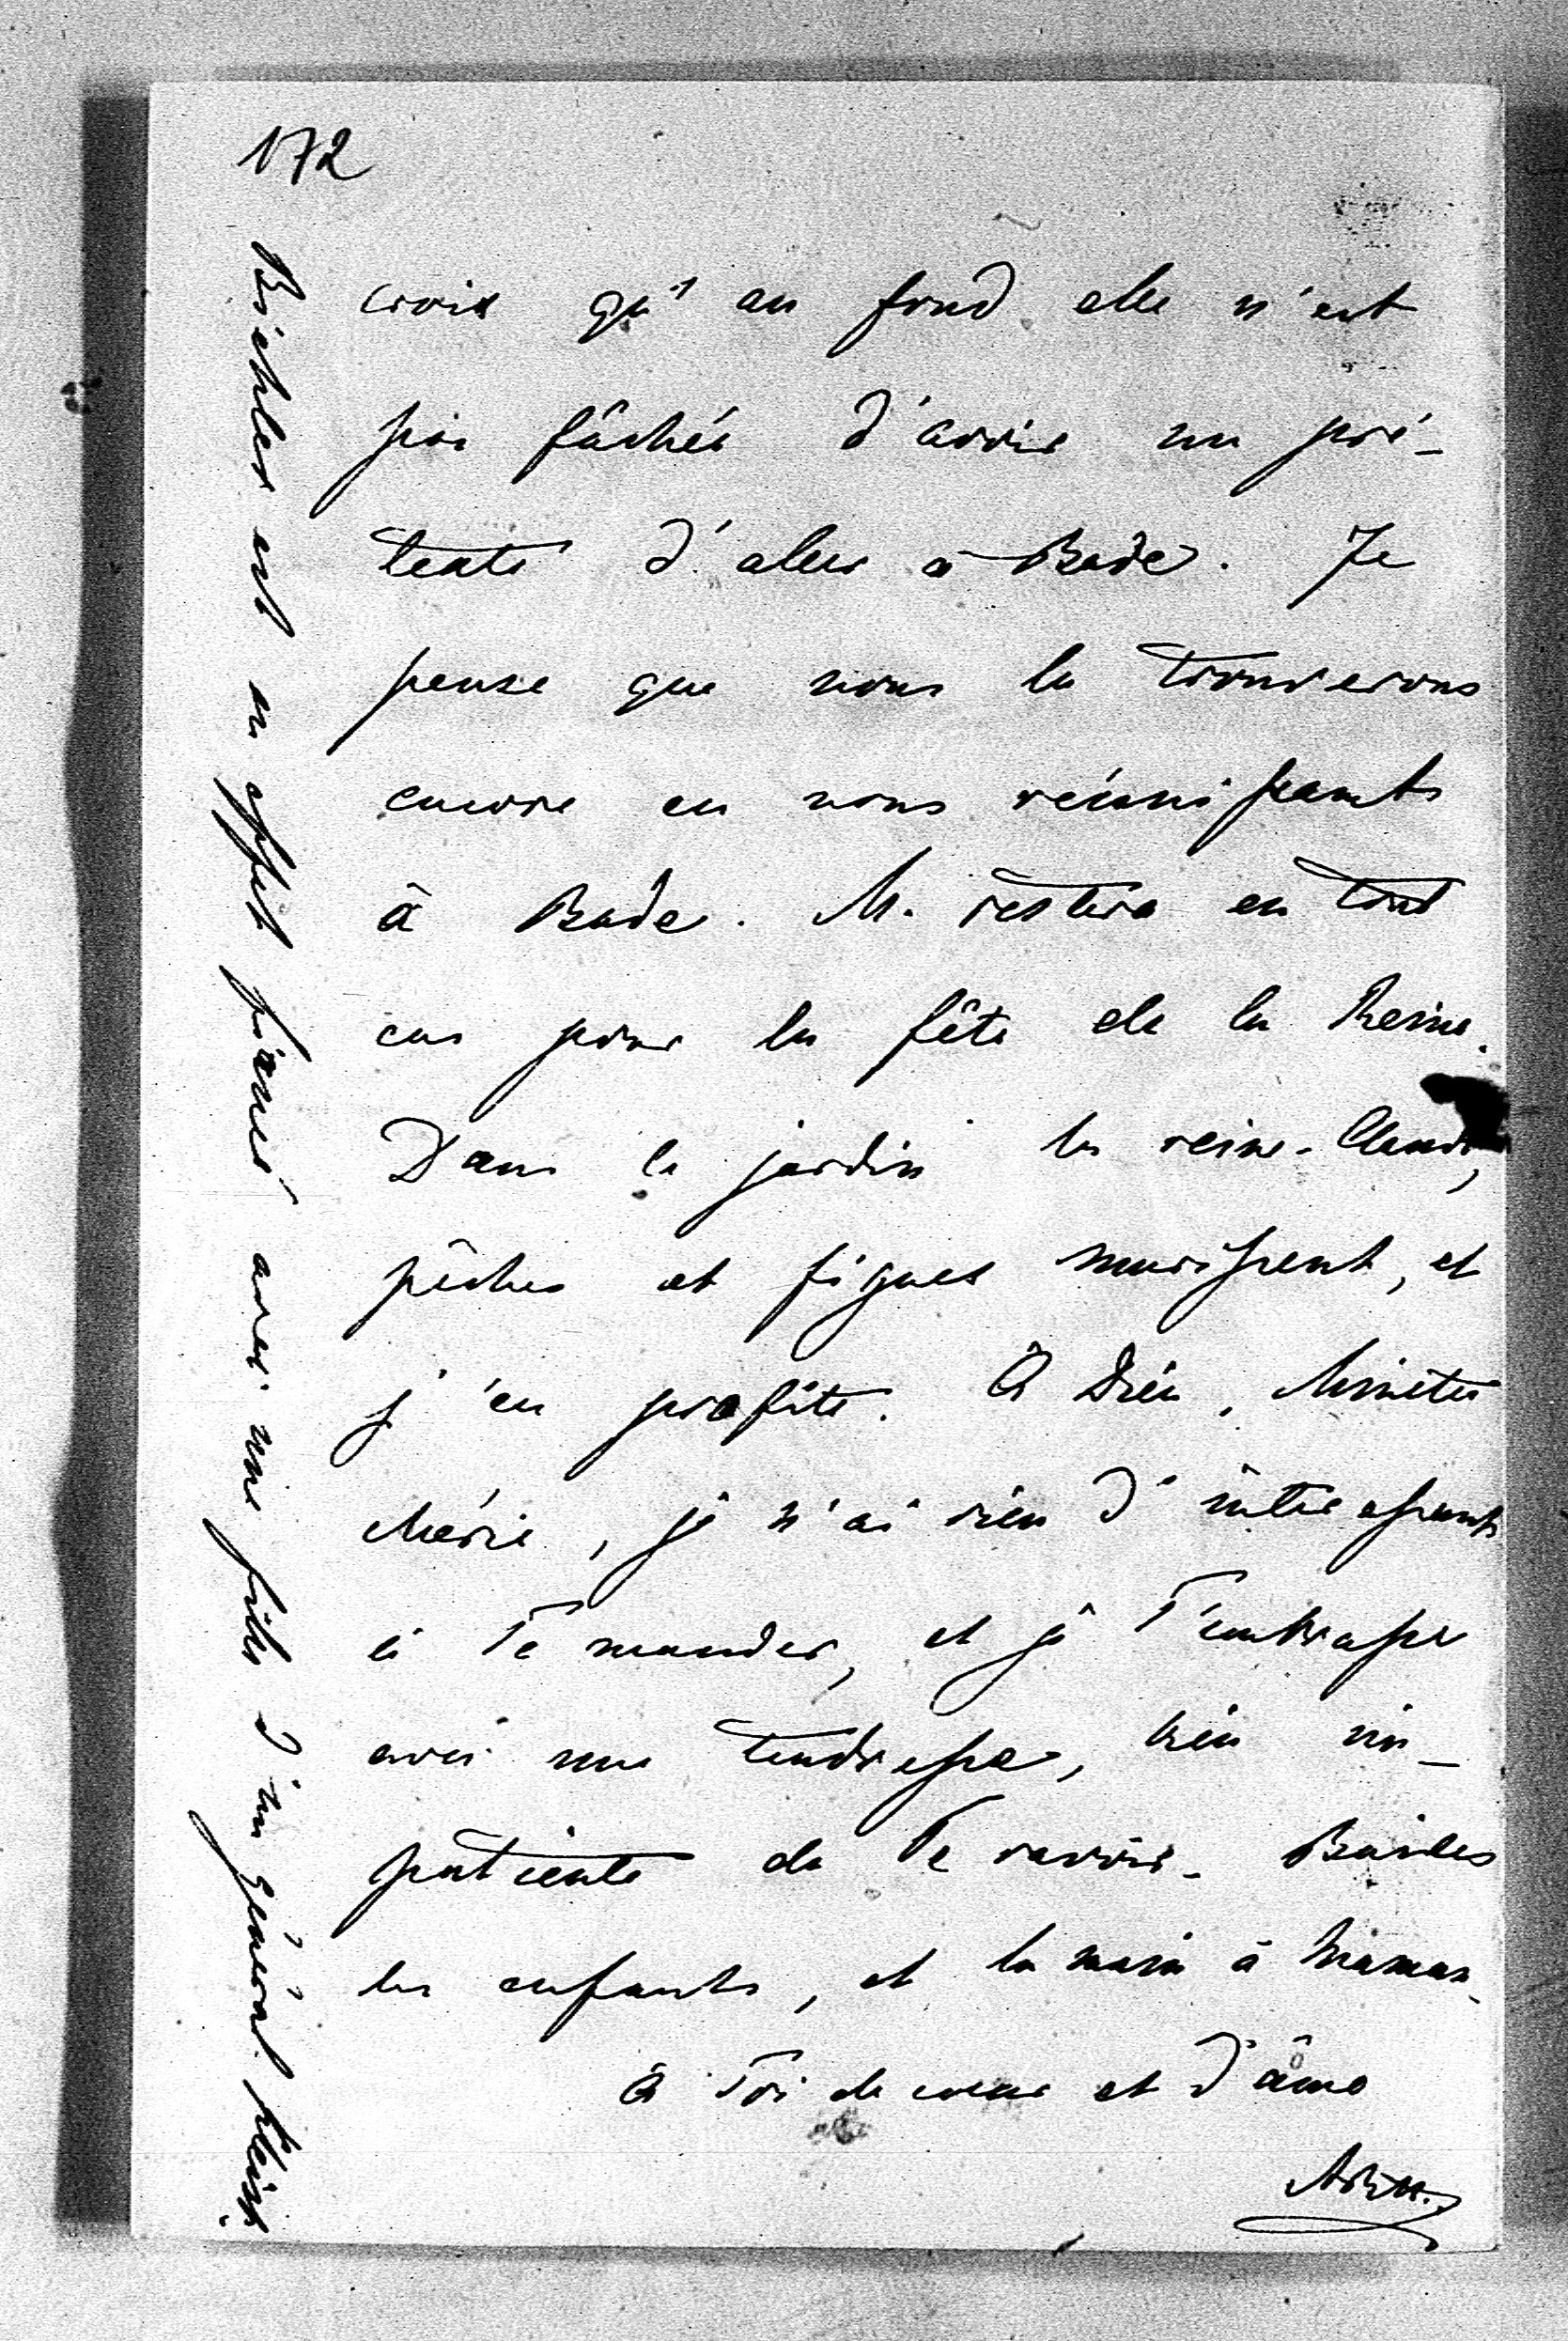 172
crois qu'au fond elle n'est
pas fâchée d'avoir un pré-
texte d'aller à Bade. Je
pense que nous la trouverons
encore en nous réunissants
à Bade. M. restera en tout
cas pour la fête de la Reine.
Dans le jardin les reine-Claude,
pêches et figues murissent, et
j'en profite. A Dieu, Minette
chérie, je n'ai rien d'intéressants
à Te mander, et je T'embrasse
avec une tendresse, bien im-
patiente de Te revoir. Baises
les enfants, et la main à Maman.
A Toi de coeur et d'âme
est en effet fiancé avec une fille d'un général Kleist.